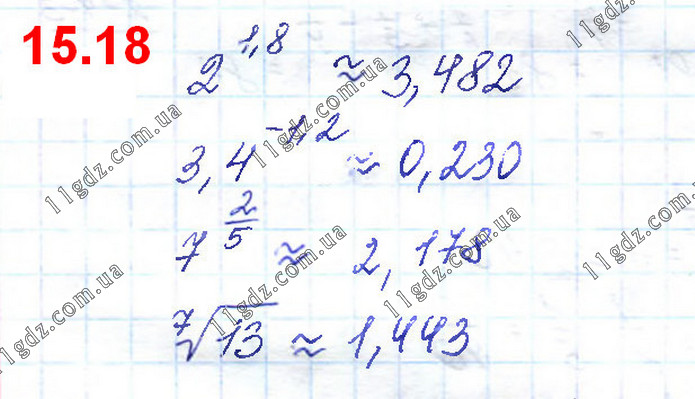 15.18
2^{1,8} ≈ 3,482
3,4^{-1,2} ≈ 0,230
7^{\frac{2}{5}} ≈ 2,178
\sqrt[7]{13} ≈ 1,443
11gdz.com.ua
11gdz.com.ua
11gdz.com.ua
11gdz.com.ua
11gdz.com.ua
11gdz.com.ua
11gdz.com.ua
11gdz.com.ua